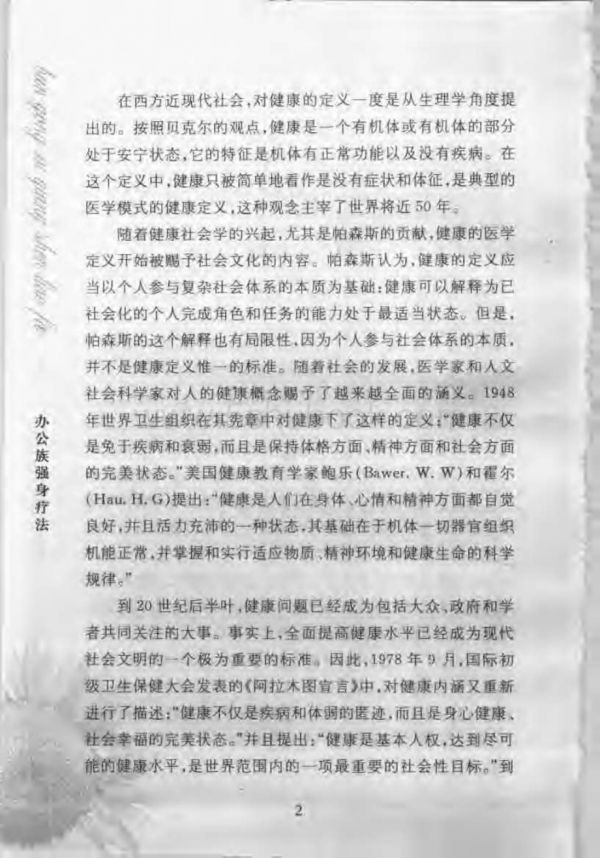 在西方近现代社会，对健康的定义一度是从生理学角度提
出的。按照贝克尔的观点，健康是一个有机体或有机体的部分
处于安宁状态，它的特征是机体有正常功能以及没有疾病。在
这个定义中，健康只被简单地看作是没有症状和体征，是典型的
医学模式的健康定义，这种观念主宰了世界将近50年。
随着健康社会学的兴起，尤其是帕森斯的贡献，健康的医学
定义开始被赐予社会文化的内容。帕森斯认为，健康的定义应
当以个人参与复杂社会体系的本质为基础；健康可以解释为已
社会化的个人完成角色和任务的能力处于最适当状态。但是，
帕森斯的这个解释也有局限性，因为个人参与社会体系的本质，
并不是健康定义惟一的标准。随着社会的发展，医学家和人文
社会科学家对人的健康概念赐予了越来越全面的涵义。1948
年世界卫生组织在其宪章中对健康下了这样的定义：“健康不仅
是免于疾病和衰弱，而且是保持体格方面、精神方面和社会方面
的完美状态。”美国健康教育学家鲍乐(Bawer. W. W)和霍尔
(Hau. H. G)提出：“健康是人们在身体、心情和精神方面都自觉
良好，并且活力充沛的一种状态，其基础在于机体一切器官组织
机能正常，并掌握和实行适应物质、精神环境和健康生命的科学
规律。”
到20世纪后半叶，健康问题已经成为包括大众、政府和学
者共同关注的大事。事实上，全面提高健康水平已经成为现代
社会文明的一个极为重要的标准。因此，1978年9月，国际初
级卫生保健大会发表的《阿拉木图宣言》中，对健康内涵又重新
进行了描述：“健康不仅是疾病和体弱的匿迹，而且是身心健康、
社会幸福的完美状态。”并且提出：“健康是基本人权，达到尽可
能的健康水平，是世界范围内的一项最重要的社会性目标。”到
办公族强身疗法
2